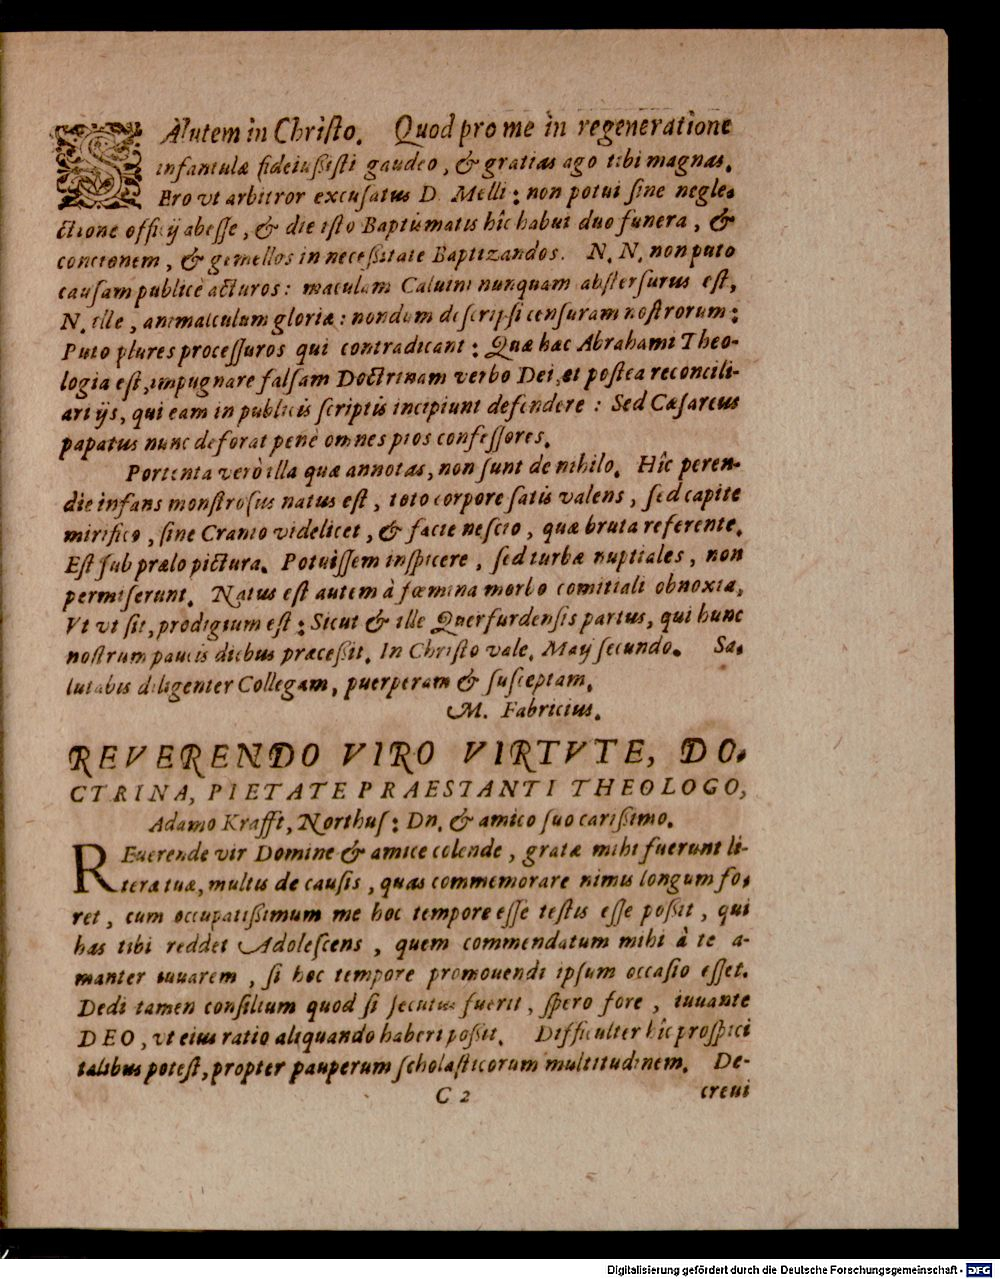 SAlutem in Chriſto. Quod pro me in regeneratione
infantulæ fideiuſsiſti gaudeo, & gratias ago tibi magnas.
Ero vt arbitror excuſatus D. Melli: non potui ſine negle-
ctione officij abeſſe, & die iſto Baptismatis hîc habui duo funera, &
concionem, & gemellos in neceſsitate Baptizandos. N. N. non puto
cauſam publicè acturos: maculam Caluini nunquam abſterſurus eſt,
N. ille, animalculum gloriæ: nondum deſcripſi cenſuram noſtrorum:
Puto plures proceſſuros qui contradicant: Quæ hæc Abrahami Theo-
logia eſt, impugnare falſam Doctrinam verbo Dei, et poſtea reconcili-
ari ijs, qui eam in publicis ſcriptis incipiunt defendere: Sed Cæſareus
papatus nunc deforat penè omnes pios confeſſores.
Portenta verò illa quæ annotas, non ſunt de nihilo. Hîc peren-
die infans monſtroſus natus eſt, toto corpore ſatis valens, ſed capite
mirifico, ſine Cranio videlicet, & facie neſcio, quæ bruta referente.
Eſt ſub prælo pictura. Potuiſſem inſpicere, ſed turbæ nuptiales, non
permiſerunt. Natus eſt autem à fœmina morbo comitiali obnoxia,
Vt vt ſit, prodigium eſt: Sicut & ille Querfurdenſis partus, qui hunc
noſtrum paucis diebus præceſsit. In Chriſto vale. Maij ſecundo. Sa-
lutabis diligenter Collegam, puerperam & ſuſceptam.
M. Fabricius.
REVERENDO VIRO VIRTVTE, DO-
CTRINA, PIETATE PRAESTANTI THEOLOGO,
Adamo Krafft, Northuſ: Dn. & amico ſuo cariſsimo.
REuerende vir Domine & amice colende, gratæ mihi fuerunt li-
teræ tuæ, multis de cauſis, quas commemorare nimis longum fo-
ret, cum occupatiſsimum me hoc tempore eſſe teſtis eſſe poſsit, qui
has tibi reddet Adoleſcens, quem commendatum mihi à te a-
manter iuuarem, ſi hoc tempore promouendi ipſum occaſio eſſet.
Dedi tamen conſilium quod ſi ſecutus fuerit, ſpero fore, iuuante
DEO, vt eius ratio aliquando haberi poſsit. Difficulter hîc proſpici
talibus poteſt, propter pauperum ſcholaſticorum multitudinem. De-
C 2 creui
Digitalisierung gefördert durch die Deutsche Forschungsgemeinschaft - DFG